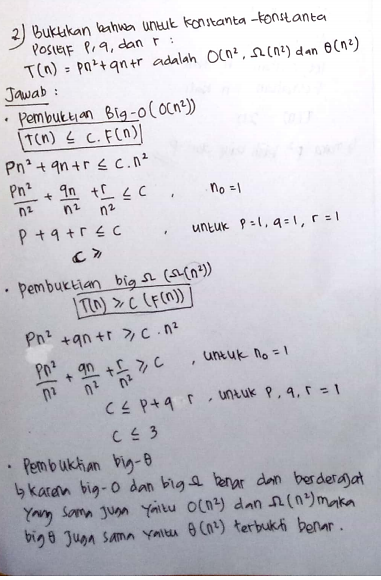 2) Buktikan bahwa untuk konstanta-konstanta
positif p, q, dan r :
T(n) = pn² + qn + r adalah O(n², Ω(n²) dan θ(n²)
Jawab :
• Pembuktian Big-O (O(n²))
T(n) ≤ C.F(n)
Pn² + qn + r ≤ c.n²
Pn²/n² + qn/n² + r/n² ≤ C , n₀ = 1
P + q + r ≤ C , untuk P=1, q=1, r=1
C ≥
• Pembuktian big Ω (Ω(n²))
T(n) ≥ C (F(n))
Pn² + qn + r ≥ C . n²
Pn²/n² + qn/n² + r/n² ≥ C , untuk n₀ = 1
C ≤ P+q r , untuk P, q, r = 1
C ≤ 3
• Pembuktian big-θ
↳ Karena big-O dan big Ω benar dan berderajat
yang sama juga yaitu O(n²) dan Ω(n²) maka
big θ juga sama yaitu θ(n²) terbukti benar.